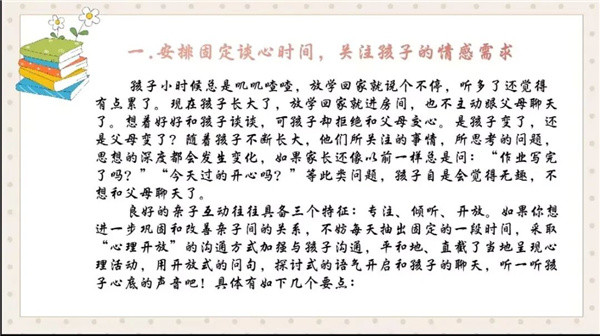 一.安排固定谈心时间，关注孩子的情感需求
孩子小时候总是叽叽喳喳，放学回家就说个不停，听多了还觉得
有点累了。现在孩子长大了，放学回家就进房间，也不主动跟父母聊天
了。想着好好和孩子谈谈，可孩子却拒绝和父母交心。是孩子变了，还
是父母变了？随着孩子不断长大，他们所关注的事情，所思考的问题，
思想的深度都会发生变化，如果家长还像以前一样总是问：“作业写完
了吗？”“今天过的开心吗？”等此类问题，孩子自是会觉得无趣，不
想和父母聊天了。
良好的亲子互动往往具备三个特征：专注、倾听、开放。如果你想
进一步巩固和改善亲子间的关系，不妨每天抽出固定的一段时间，采取
“心理开放”的沟通方式加强与孩子沟通，平和地、直截了当地呈现心
理活动，用开放式的问句，探讨式的语气开启和孩子的聊天，听一听孩
子心底的声音吧！具体有如下几个要点：